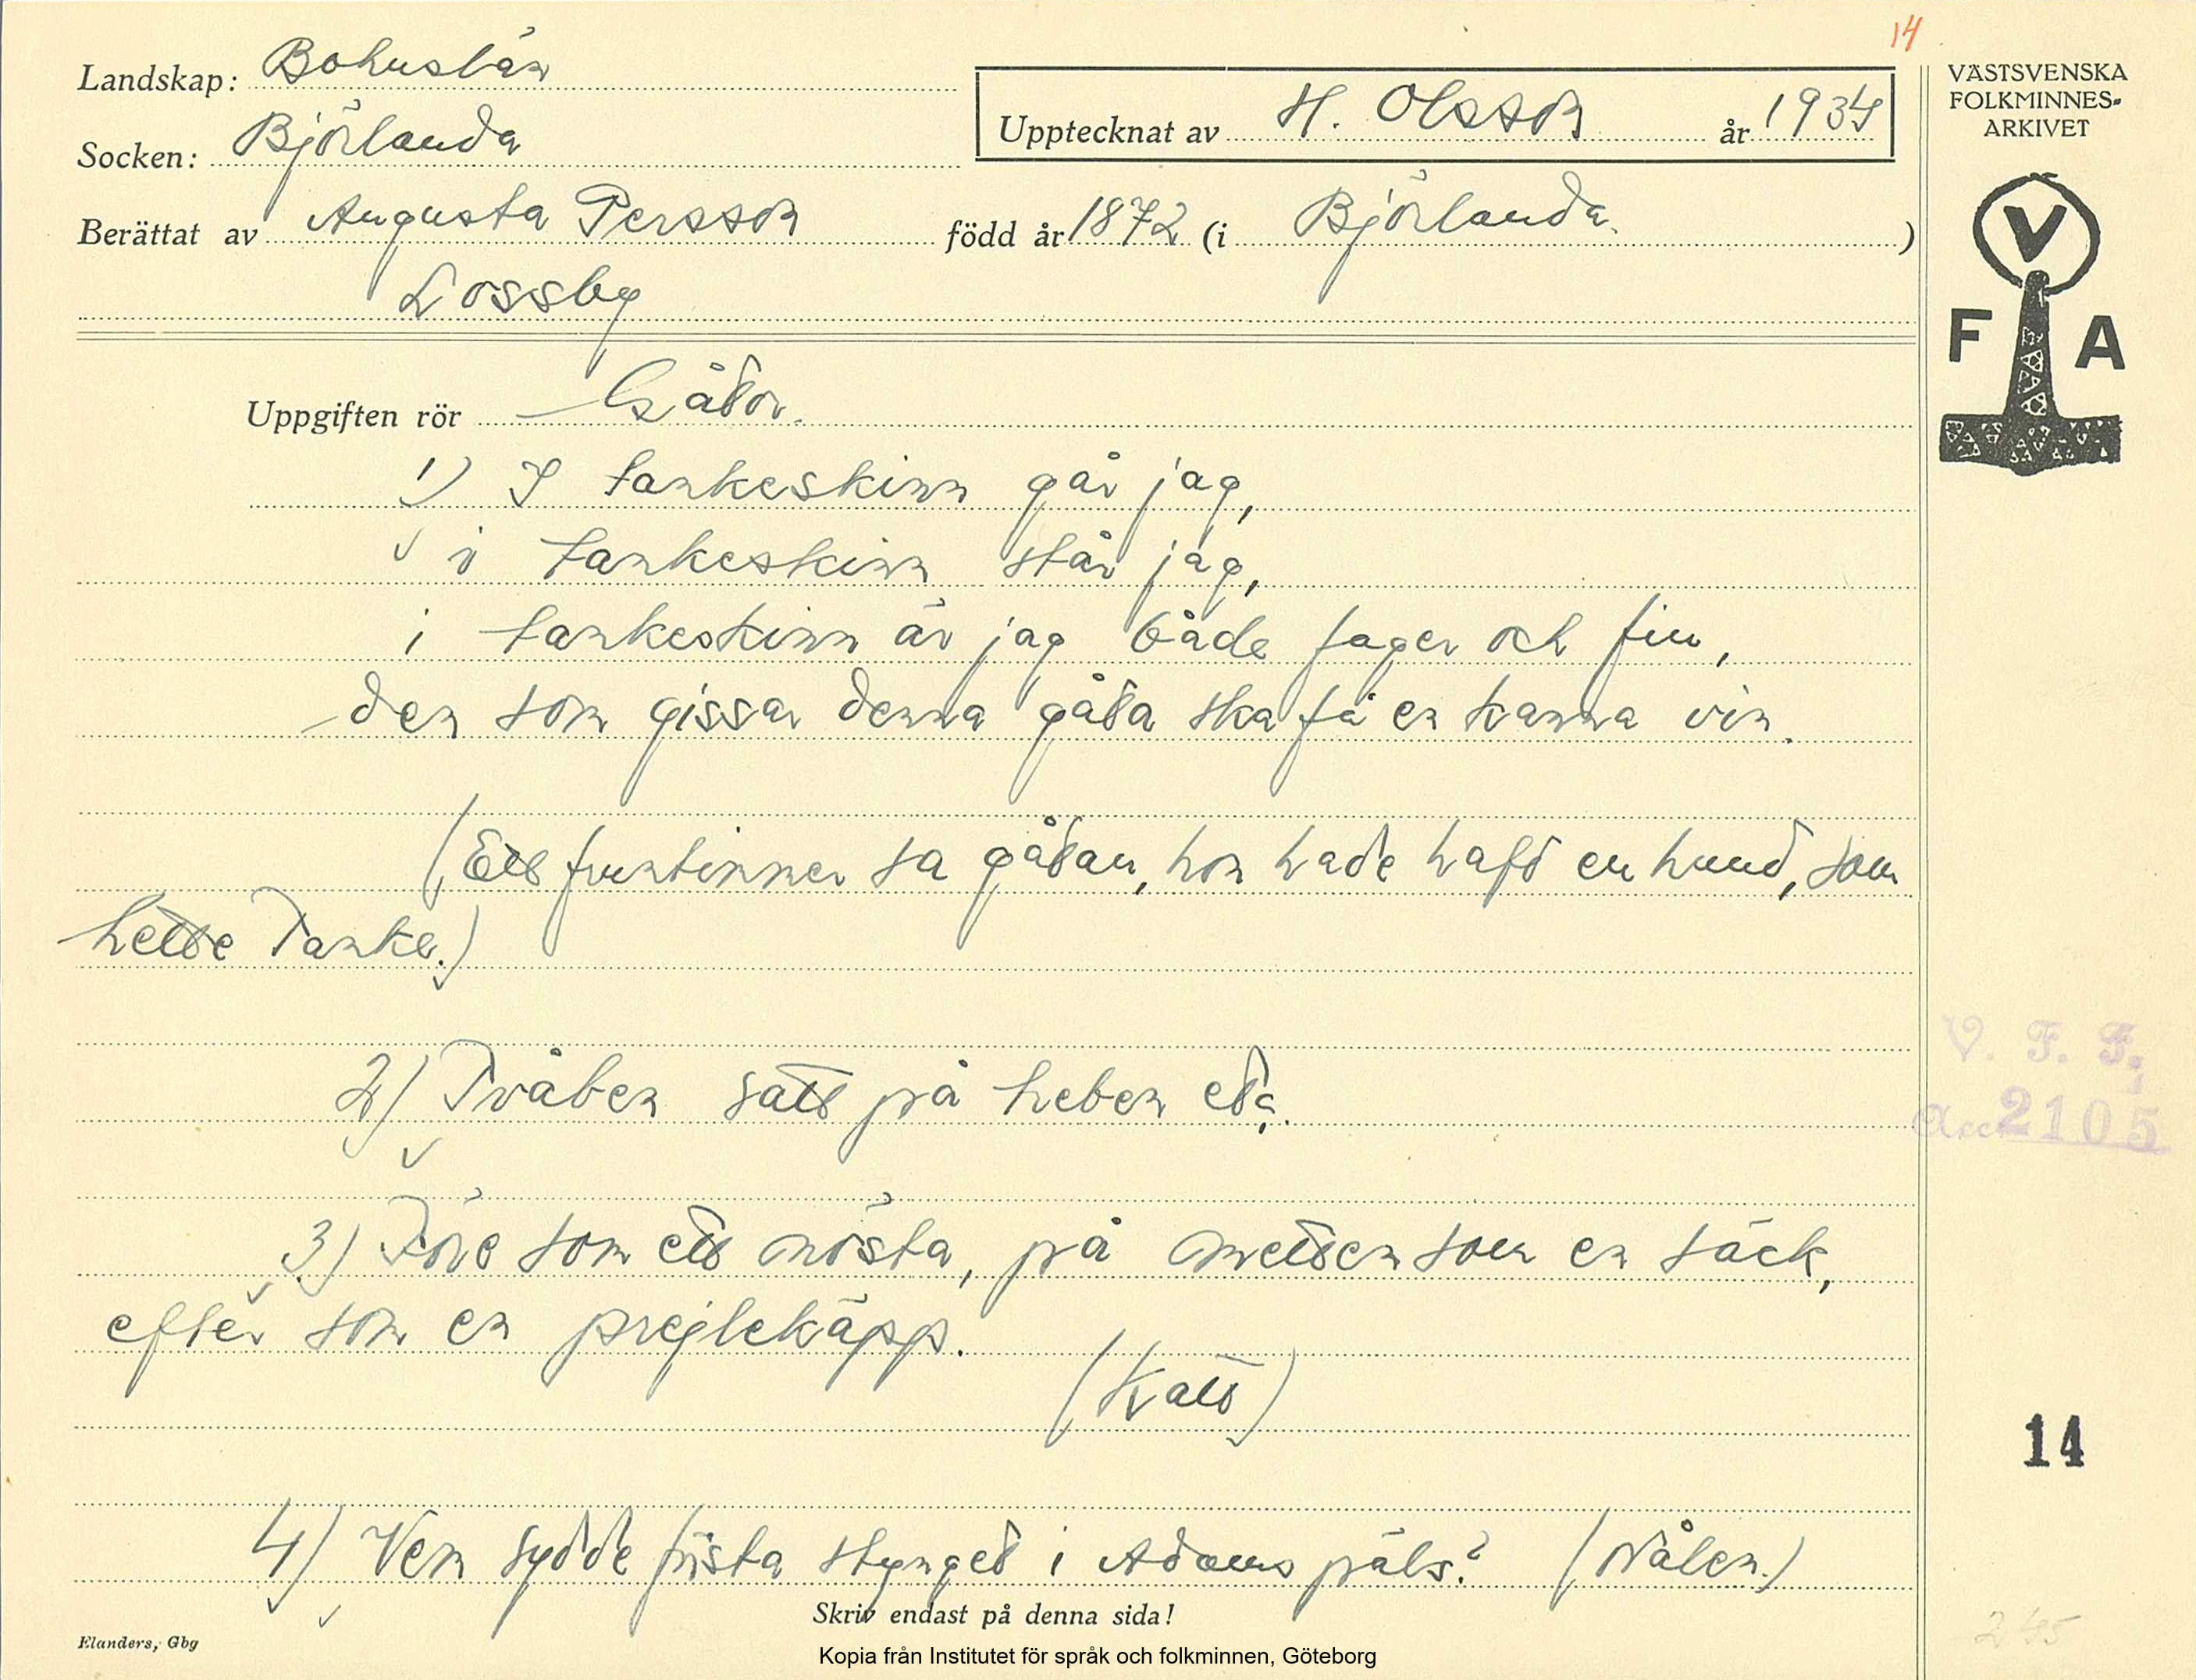 14
Landskap: Bohuslän
Socken: Björlanda
Upptecknat av H. Olsson år 1934
Berättat av Augusta Persson född år 1872 (i Björlanda.)
Lossby
VÄSTSVENSKA
FOLKMINNES-
ARKIVET
V
F A
Uppgiften rör Gåtor.
1) I tankeskinn går jag,
i tankeskinn står jag,
i tankeskinn är jag både fager och fin,
den som gissar denna gåta ska få en kanna vin.
(Ett fruntimmer sa gåtan, hon hade haft en hund, som
hette Tanke.)
2) Tvåben satt på heben
3) Före som ett nösta, på metten som en säck,
efter som en prejlekäpp.
(Katt)
4) Vem sydde första stynget i Adams päls? (Nålen.)
V. F. F.
Acc 2105
14
Skriv endast på denna sida!
Elanders, Gbg
Kopia från Institutet för språk och folkminnen, Göteborg